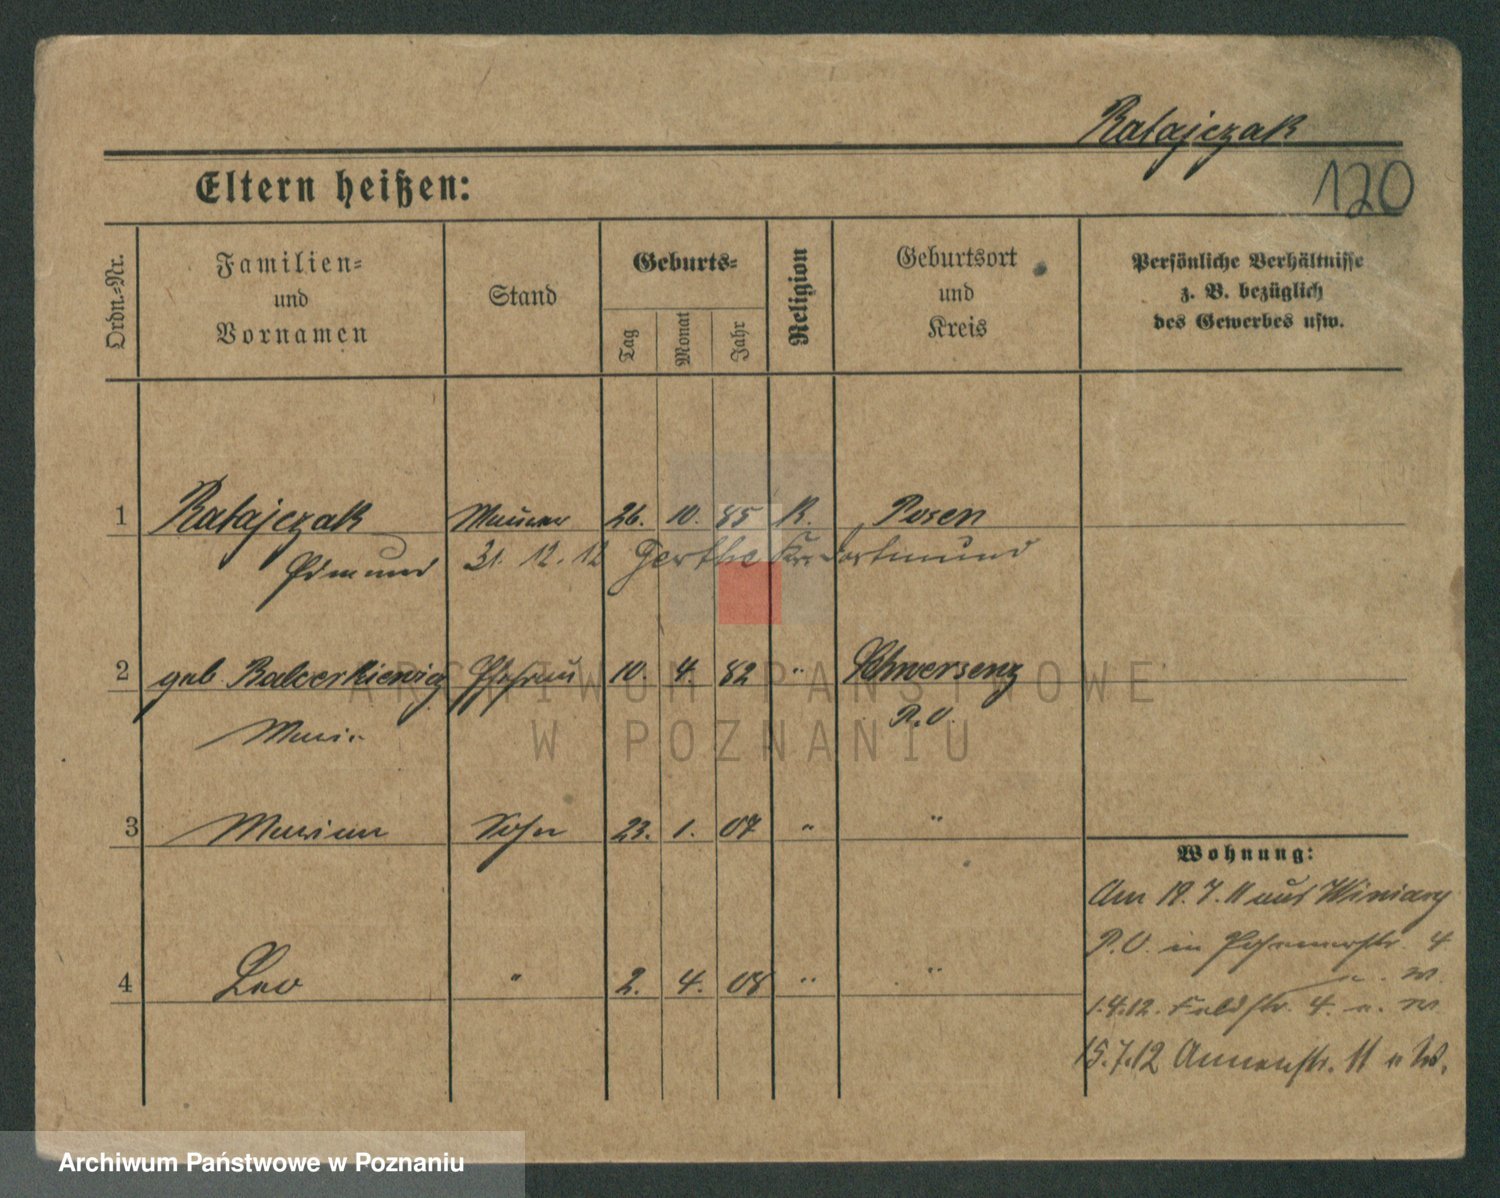 Ratajczak
120
Eltern heißen:
Ordn.-Nr.
Familien-
und
Vornamen
Stand
Geburts-
Tag
Monat
Jahr
Religion
Geburtsort
und
Kreis
Persönliche Verhältnisse
z. B. bezüglich
des Gewerbes usw.
1 Ratajczak Maurer 26. 10. 85 K. Posen
Edmund 31. 12. 12 Gerthe Kr. Dortmund
2 geb Balcerkiewicz Ehefrau 10. 4. 82 " Schwersenz
Marie P.O.
3 Marian Sohn 23. 1. 07 " "
4 Leo " 2. 4. 08 " "
Wohnung:
Am 19.7.11 aus Winiary
P.O. in Posenerstr. 4
u. W.
1.4.12. Feldstr. 4. u. W
15.7.12 Annenstr. 11 u W.
ARCHIWUM PAŃSTWOWE
W POZNANIU
Archiwum Państwowe w Poznaniu